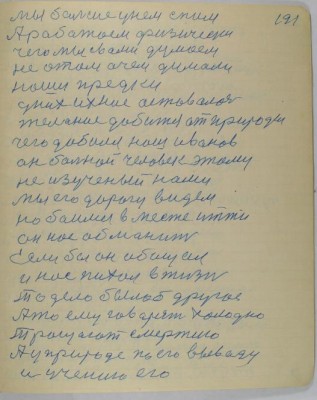 191
мы больше унем спим
А работаем физически
чего мы свами думаем
не отом очем думали
наши предки
уних ихнае оставалоя
желание добится от природы
чего добился наш иванов
он болной человек этому
не изученый нами
мы его дорогу видем
но боимя вместе итти
он нас обманит
Если бы он обещал
и нас пихал в жизу
То дело было б другое
А то ему говорят холодно
Трощат смертию
А уприроде по его выводу
и учению его